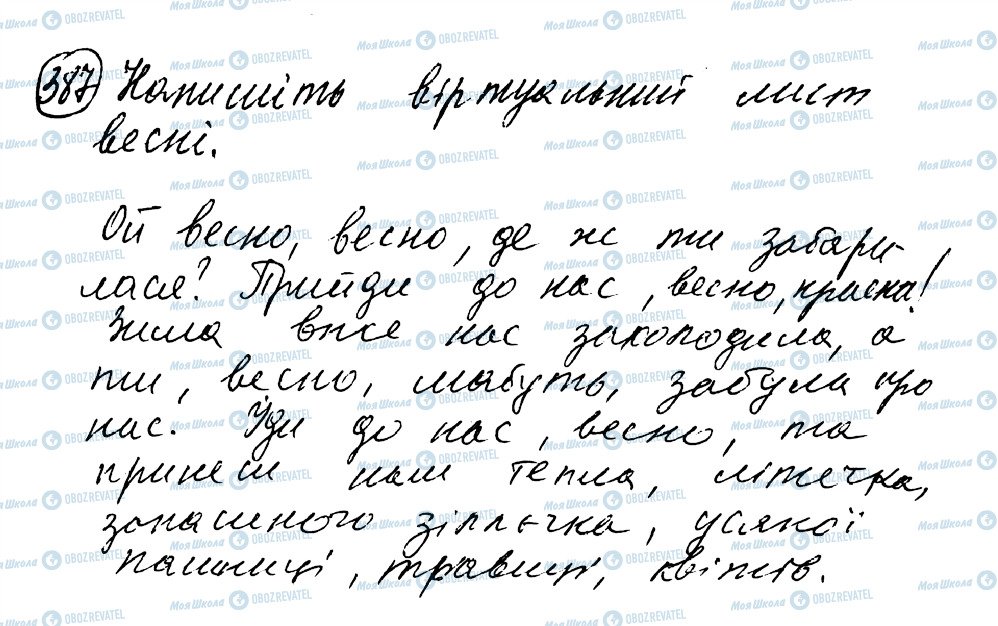 387 Напишіть віртуальний лист
весні.
Ой весно, весно, де ж ти забари-
лася? Прийди до нас, весно, красна!
Зима вже нас захолодила, а
ти, весно, мабуть, забула про
нас. Йди до нас, весно, та
принеси нам тепла, літечка,
запашного зіллячка, усякої
пашниці, травиці, квітів.